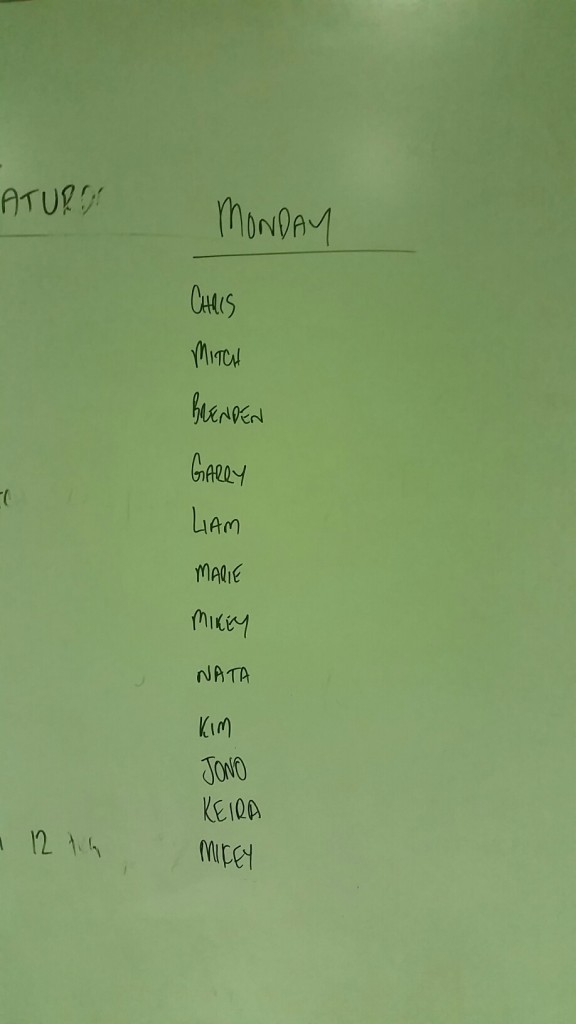 ATURD
MONDAY
CHRIS
MITCH
BRENDEN
GARRY
LIAM
MARIE
MIKEY
NATA
KIM
JONO
KEIRA
MIKEY
12